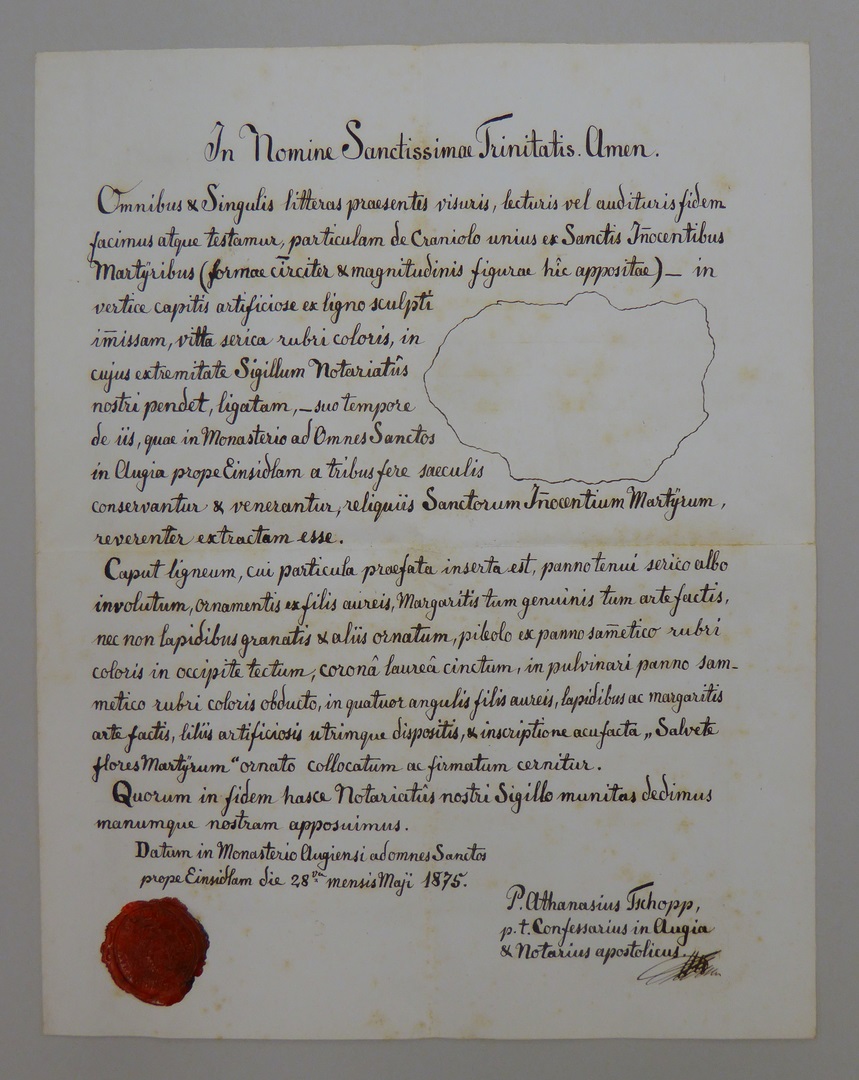 In Nomine Sanctissimae Trinitatis. Amen.
Omnibus & Singulis litteras praesentes visuris, lecturis vel audituris fidem
facimus atque testamur, particulam de Craniolo unius ex Sanctis Iñocentibus
Martÿribus (formae circiter & magnitudinis figurae hîc appositae) — in
vertice capitis artificiose ex ligno sculpti
im̅issam, vitta serica rubri coloris, in
cujus extremitate Sigillum Notariatûs
nostri pendet, ligatam, — suo tempore
de iis, quae in Monasterio ad Omnes Sanctos
in Augia prope Einsidlam a tribus fere saeculis
conservantur & venerantur, reliquiis Sanctorum Iñocentium Martÿrum,
reverenter extractam esse.
Caput ligneum, cui particula praefata inserta est, panno tenui serico albo
involutum, ornamentis ex filis aureis, Margaritis tum genuinis tum arte factis,
nec non lapidibus granatis & aliis ornatum, pileolo ex panno sam̅etico rubri
coloris in occipite tectum, coronâ laureâ cinctum, in pulvinari panno sam-
metico rubri coloris obducto, in quatuor angulis filis aureis, lapidibus ac margaritis
arte factis, liliis artificiosis utrimque dispositis, & inscriptione acu facta „Salvete
flores Martÿrum“ ornato collocatum ac firmatum cernitur.
Quorum in fidem hasce Notariatûs nostri Sigillo munitas dedimus
manumque nostram apposuimus.
Datum in Monasterio Augiensi ad omnes Sanctos
prope Einsidlam die 28va mensis Maji 1875.
P. Athanasius Tschopp,
p. t. Confessarius in Augia
& Notarius apostolicus.